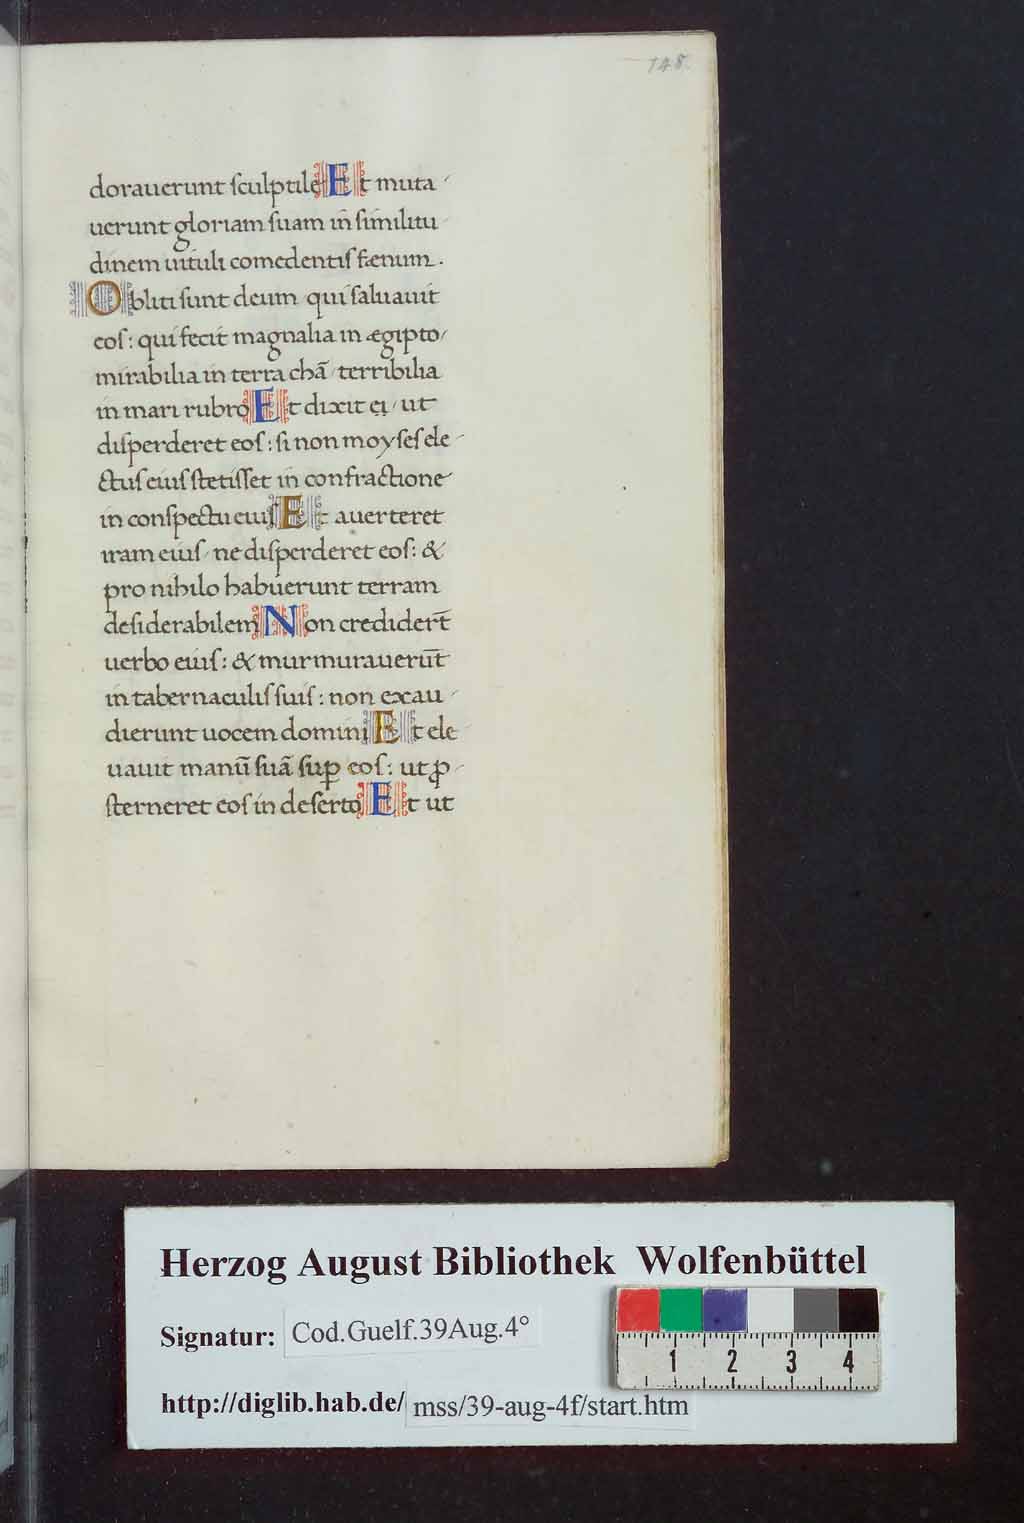 148.
dorauerunt sculptile Et muta
uerunt gloriam suam in similitu
dinem uituli comedentis fænum.
Obliti sunt deum qui saluauit
eos: qui fecit magnalia in ægipto/
mirabilia in terra chã / terribilia
in mari rubro Et dixit ei / ut
disperderet eos: si non moyses ele
ctus eius stetisset in confractione
in conspectu eius Et auerteret
iram eius / ne disperderet eos: &
pro nihilo habuerunt terram
desiderabilem Non crediderт̄
uerbo eius: & murmurauerūt
in tabernaculis suis: non exau
dierunt uocem domini Et ele
uauit manū suā suꝑ eos: ut ꝓ
sterneret eos in deserto Et ut
Herzog August Bibliothek Wolfenbüttel
Signatur: Cod.Guelf.39Aug.4°
http://diglib.hab.de/ mss/39-aug-4f/start.htm
1 2 3 4